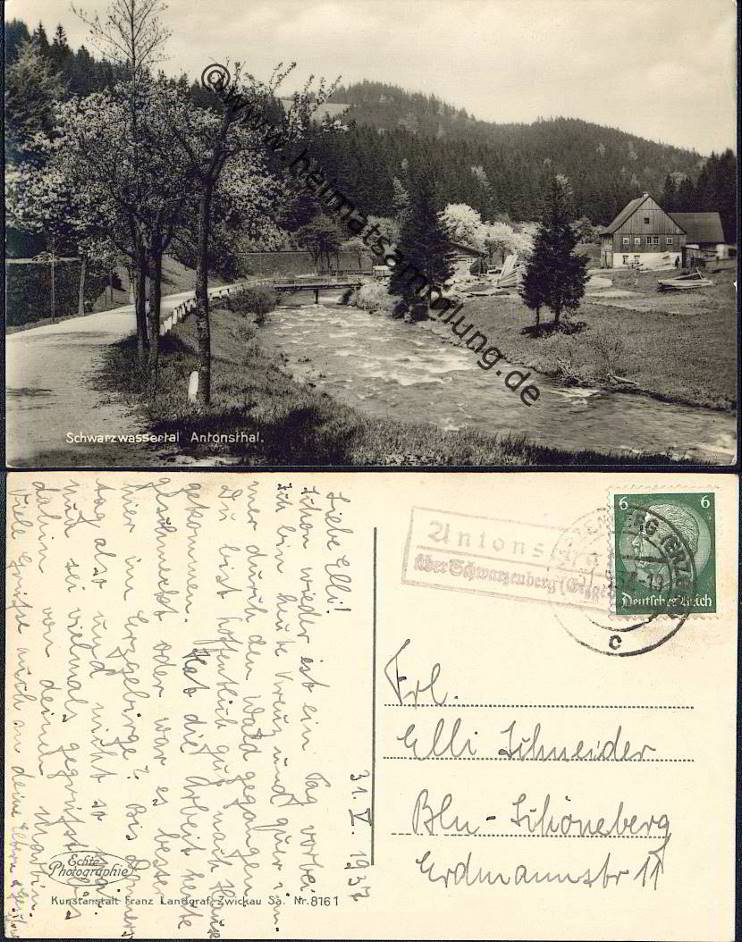 © www.heimatsammlung.de
Schwarzwassertal Antonsthal.
Liebe Elli! 31. V. 1937
Schon wieder ist ein Tag vorbei.
Ich bin heute kreuz und quer im-
mer durch den Wald gegangen.
Du bist hoffentlich gut nach Hause
gekommen. Hat die Arbeit heute
geschmeckt oder war es besser
hier im Erzgebirge? Bis Donners
tag also und nicht so
und sei vielmals gegrüßt bis
dahin von deinem Martin.
Viele Grüße auch an deine Eltern
Echte
Photographie
Kunstanstalt Franz Landgraf, Zwickau Sa. Nr. 8161
Antonsthal
über Schwarzenberg (Erzgeb
6 6
Deutsches Reich
c
Frl.
Elli Schneider
Bln-Schöneberg
Erdmannstr 11